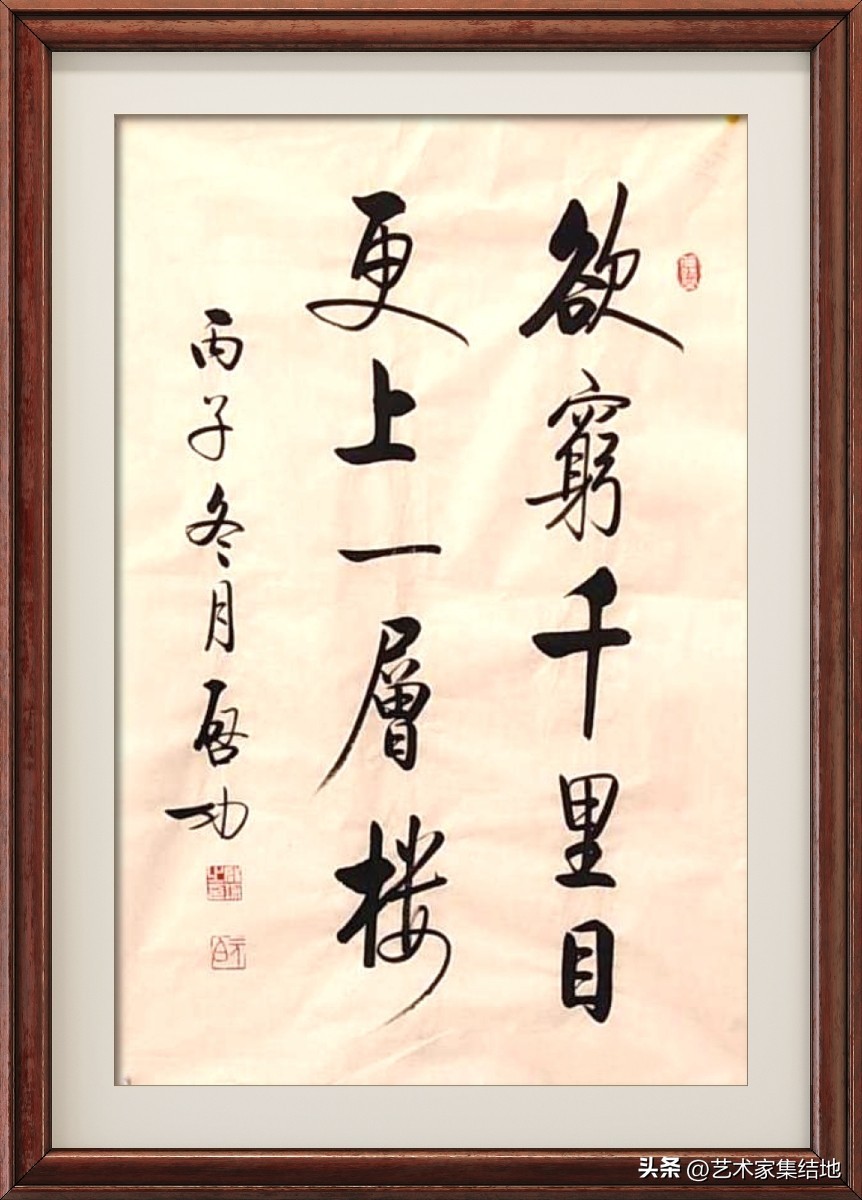 欲窮千里目
更上一層楼
丙子冬月启功
头条 @艺术家集结地